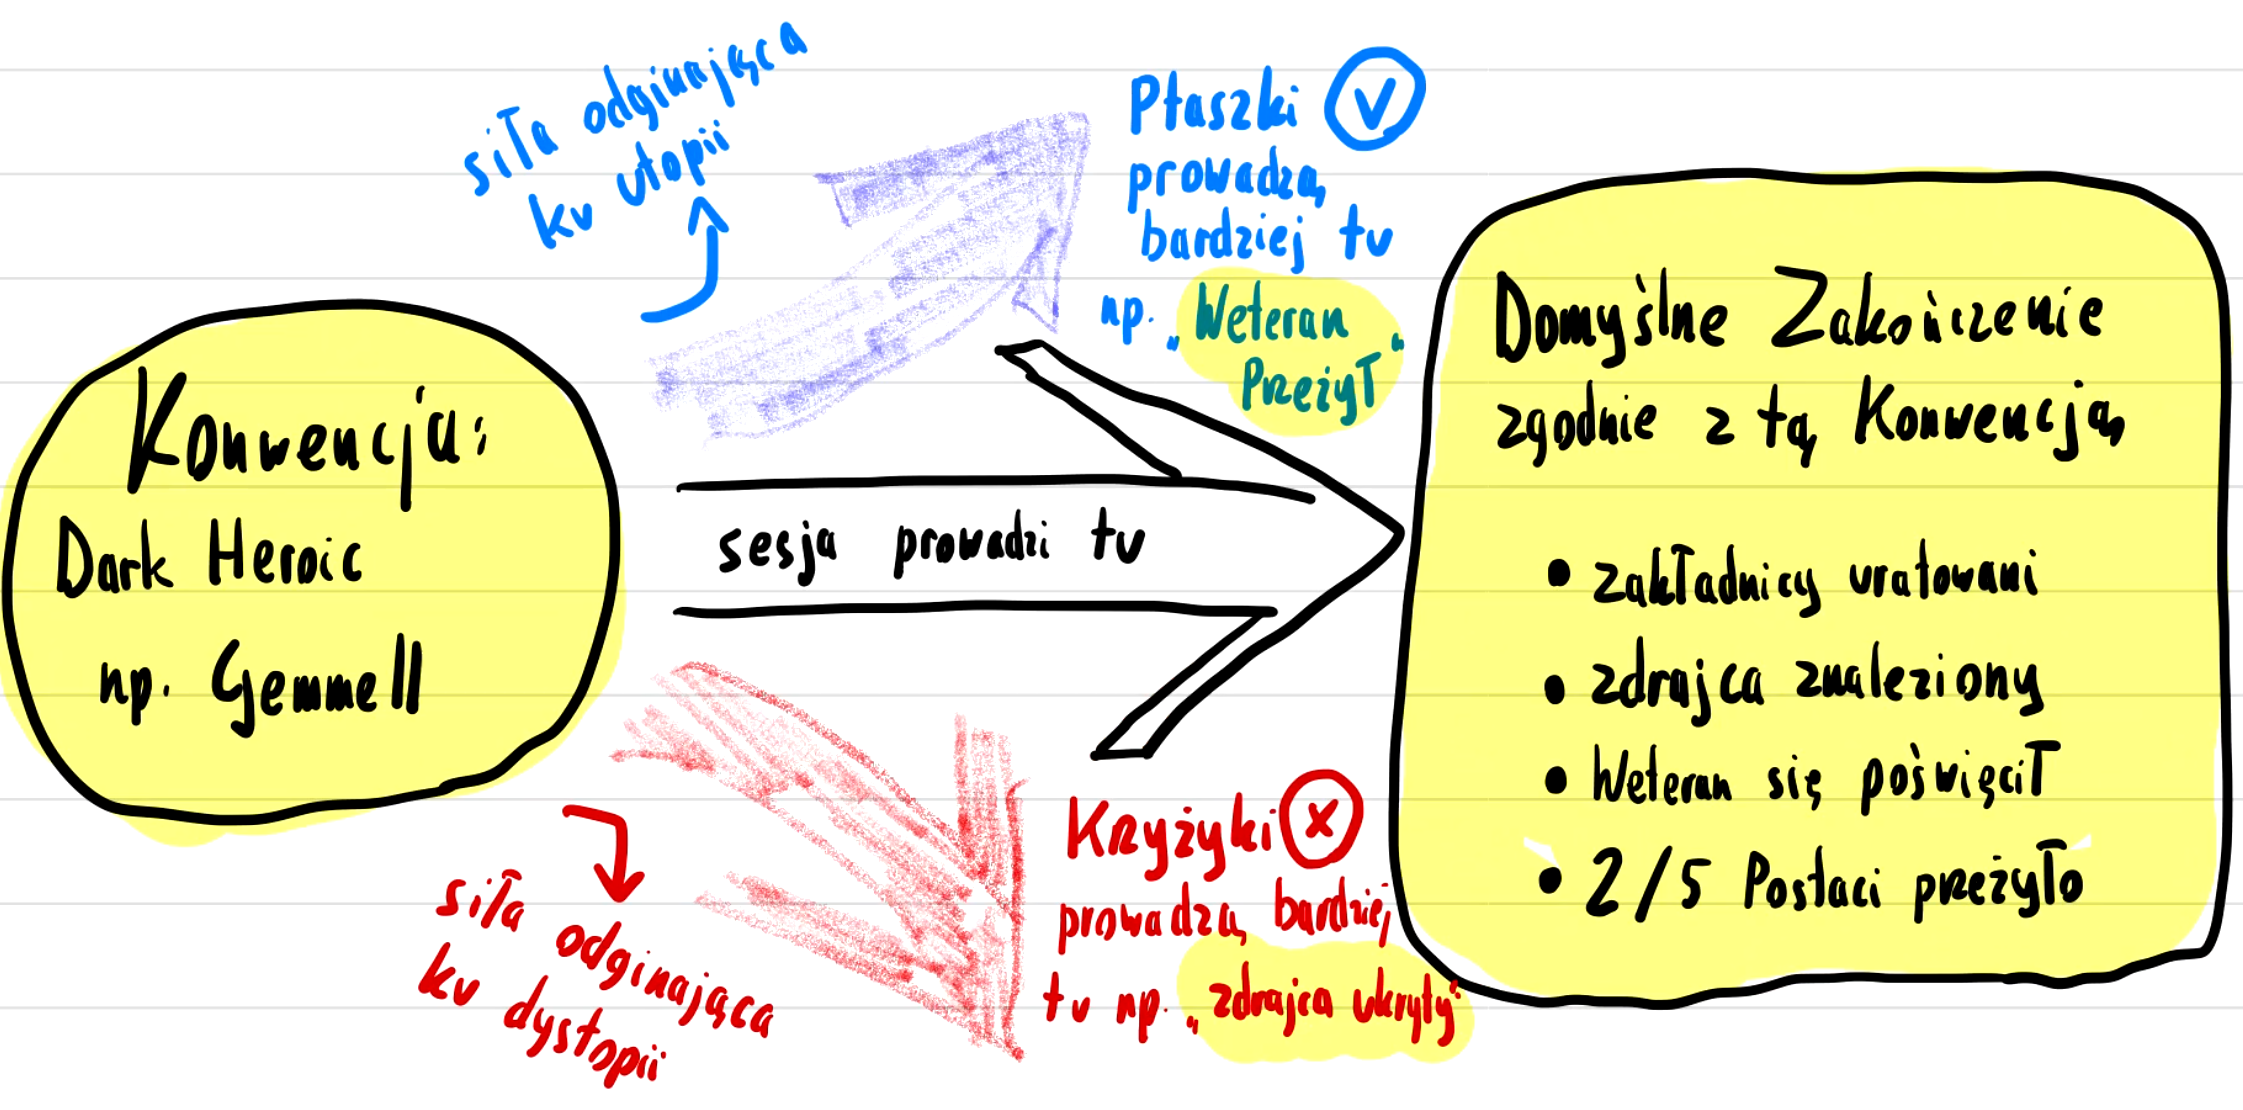 siła odginająca
ku utopii
Ptaszki ✓
prowadzą
bardziej tu
np. „Weteran
Przeżył“
Konwencja:
Dark Heroic
np. Gemmell
sesja prowadzi tu
Domyślne Zakończenie
zgodnie z tą Konwencją
• zakładnicy uratowani
• zdrajca znaleziony
• Weteran się poświęcił
• 2/5 Postaci przeżyło
siła odginająca
ku dystopii
Krzyżyki x
prowadzą bardziej
tu np. „zdrajca ukryty“